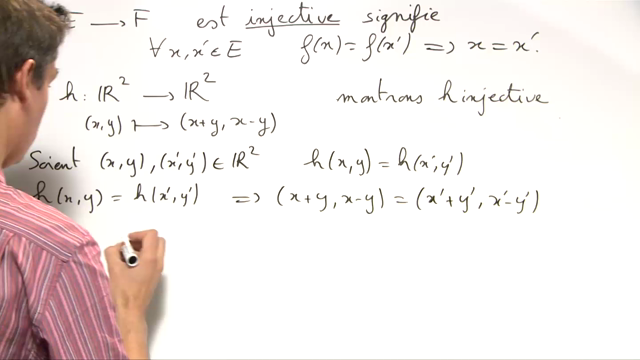 E ⟶ F est injective signifie
∀ x, x' ∈ E f(x) = f(x') ⟹ x = x'.
h : ℝ² ⟶ ℝ² montrons h injective
(x,y) ⟼ (x+y, x-y)
Soient (x,y), (x',y') ∈ ℝ² h(x,y) = h(x',y')
h(x,y) = h(x',y') ⟹ (x+y, x-y) = (x'+y', x'-y')